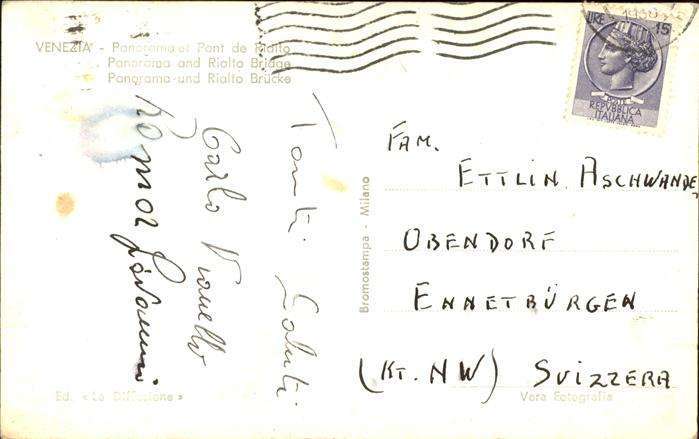 VENEZIA - Panorama et Pont de Rialto
Panorama and Rialto Bridge
Panorama und Rialto Brücke
LIRE 15
POSTE
REPUBBLICA
ITALIANA
Tanti Saluti
Carlo Vianello
Giovanni
Bromostampa - Milano
FAM.
ETTLIN ASCHWANDE
OBENDORF
ENNETBÜRGEN
(KT. NW) SVIZZERA
Ed. « La Diffusione »
Vera Fotografia